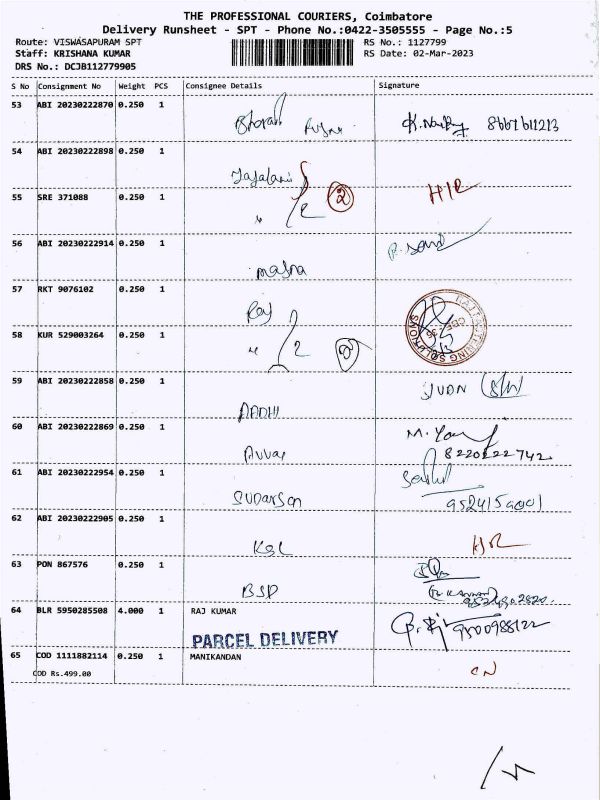 THE PROFESSIONAL COURIERS, Coimbatore
Delivery Runsheet - SPT - Phone No.:0422-3505555 - Page No.:5
Route: VISWASAPURAM SPT RS No.: 1127799
Staff: KRISHANA KUMAR RS Date: 02-Mar-2023
DRS No.: DCJB112779905
S No Consignment No Weight PCS Consignee Details Signature
53 ABI 20230222870 0.250 1
Bharath 8667611213
54 ABI 20230222898 0.250 1
55 SRE 371088 0.250 1
2
56 ABI 20230222914 0.250 1
masna
57 RKT 9076102 0.250 1
Raj
58 KUR 529003264 0.250 1
2
59 ABI 20230222858 0.250 1
AADHI
60 ABI 20230222869 0.250 1
8220222742
61 ABI 20230222954 0.250 1
SUDARSAN
62 ABI 20230222905 0.250 1
KGL
63 PON 867576 0.250 1
BSP
64 BLR 5950285508 4.000 1 RAJ KUMAR
PARCEL DELIVERY 9500988122
65 COD 1111882114 0.250 1 MANIKANDAN
COD Rs.499.00 CN